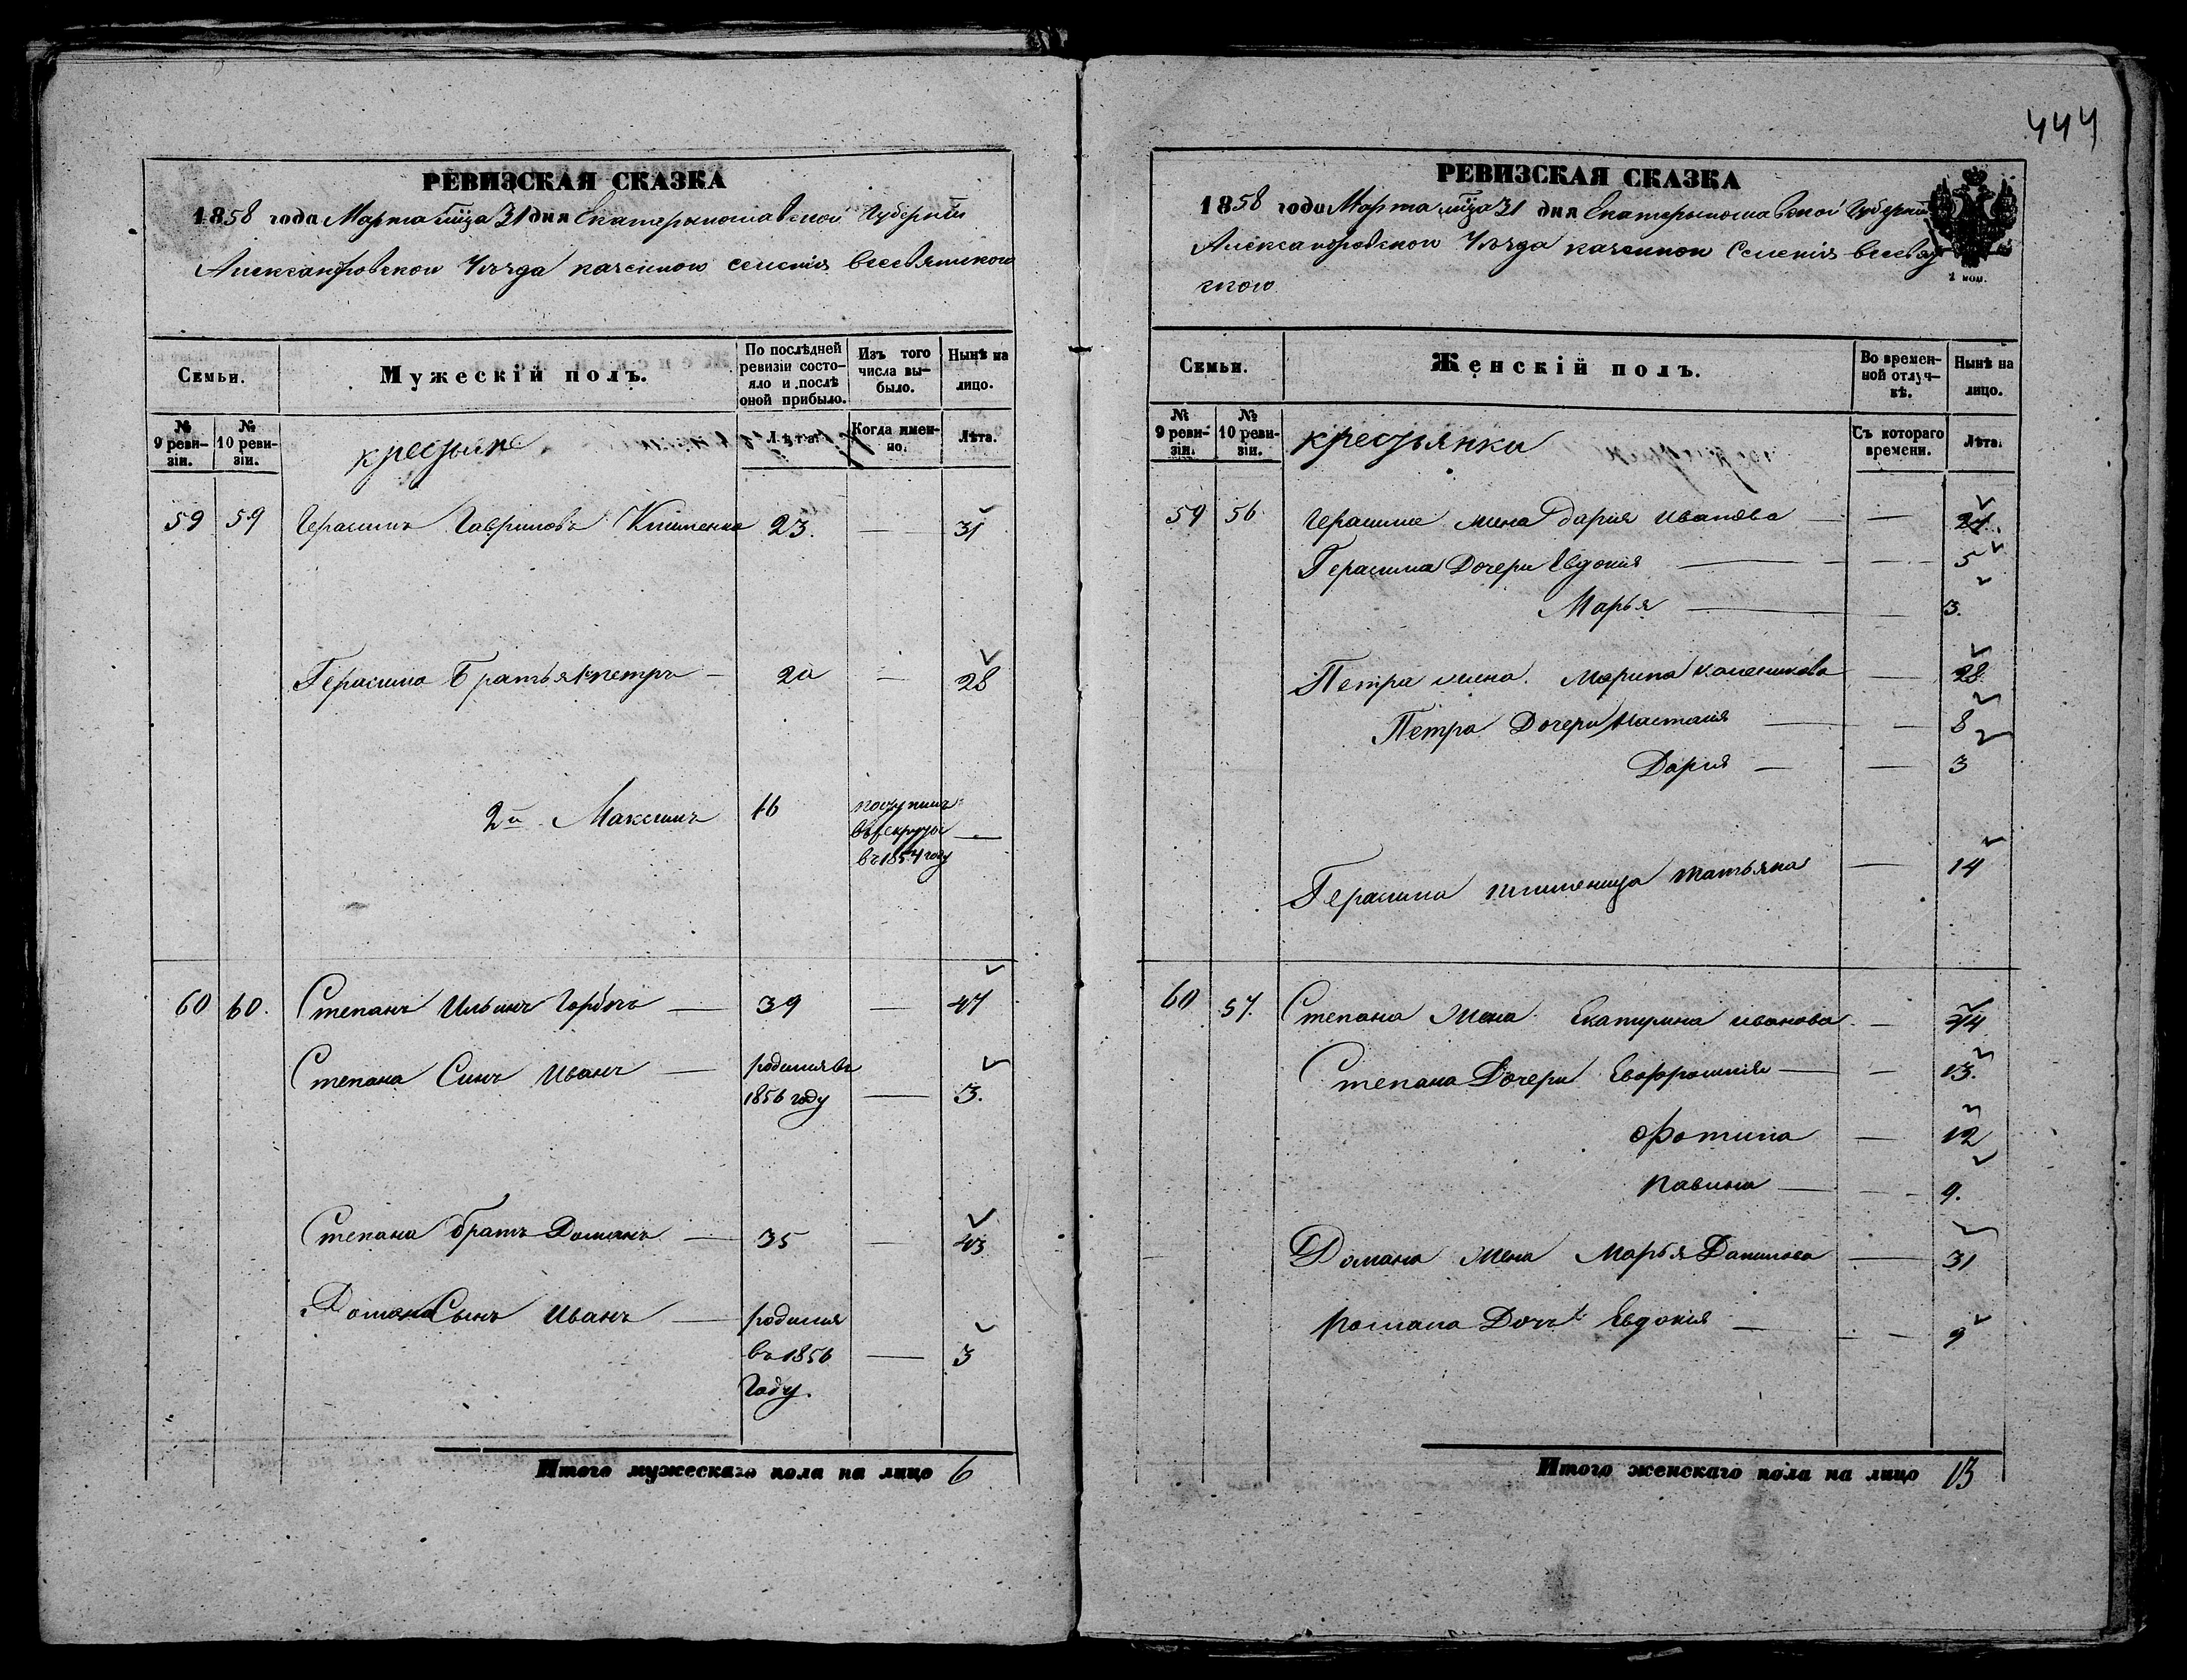 444
РЕВИЗСКАЯ СКАЗКА
1858 года Марта мѣца 31 дня Екатеринославской Губерніи
Александровскои Уѣзда казенного селенія Всесвятского
Семьи.
Мужескій полъ.
По послѣдней ревизіи состояло и послѣ оной прибыло.
Изъ того числа выбыло.
Нынѣ на лицо.
№ 9 ревизіи.
№ 10 ревизіи.
крестьяне
Лѣта.
Когда именно.
Лѣта.
59 59 Герасимъ Гавриловъ 23. — 31
Герасима Братья 1й петръ — 20 — 28
2й Максимъ 16 поступилъ в рекруты в 1854 году —
60 60. Степанъ Ильинъ Горбачъ — 39 — 47
Степана Синъ Иванъ — родился въ 1856 году — 3.
Степана братъ Романъ — 35 — 43
Романа Сынъ Иванъ — родился въ 1856 году. — 3
Итого мужескаго пола на лицо 6
РЕВИЗСКАЯ СКАЗКА
1858 года Марта мѣца 31 дня Екатеринославской Губерніи
Александровскои Уѣзда казеннои Селенія Всесвят
ского
Семьи.
Женскій полъ.
Во временной отлучкѣ.
Нынѣ на лицо.
№ 9 ревизіи.
№ 10 ревизіи.
крестьянки
Съ котораго времени.
Лѣта.
59 56 Герасима жена Дария Иванова — —
Герасима Дочери Евдокия — — 5
Марья — — 3.
Петра жена Марина — 28
Петра Дочери Настасия — — 8
Дария — — 3
Герасима племеница татьяна — 14
60 57. Степана Жена Екатирина иванова. —
Степана Дочери Евфросиния — — 13.
Фотина — 12
Павлина — — 9.
Романа Жена Марья Данилова — 31
Романа Дочь Евдокия — — 9
Итого женскаго пола на лицо 13